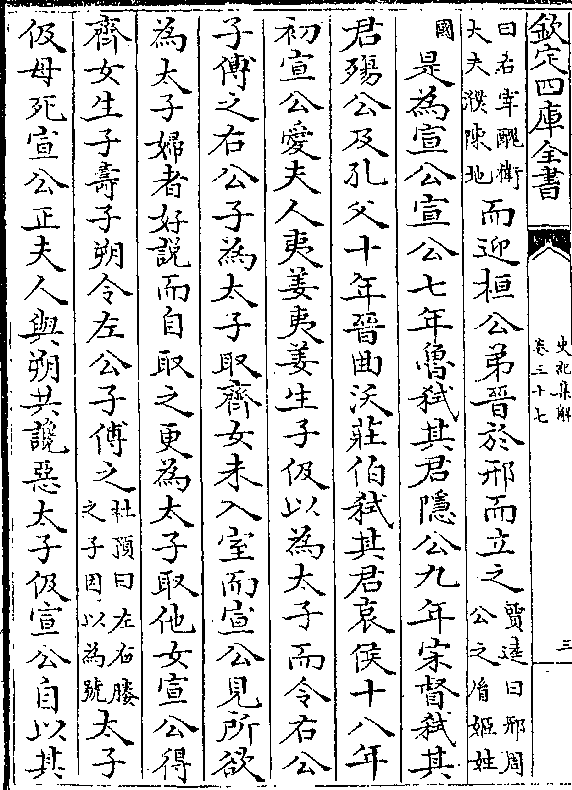 欽定四庫全書
史記集解
卷三十七
三
曰右宰醜衛
大夫濮陳地
而迎桓公弟晉於邢而立之
賈逵曰邢周
公之𦙍姬姓
國
是為宣公宣公七年魯弑其君隱公九年宋督弑其
君殤公及孔父十年晉曲沃莊伯弑其君哀侯十八年
初宣公愛夫人夷姜夷姜生子伋以為太子而令右公
子傅之右公子為太子取齊女未入室而宣公見所欲
為太子婦者好說而自取之更為太子取他女宣公得
齊女生子壽子朔令左公子傅之
杜預曰左右媵
之子因以為號
太子
伋母死宣公正夫人與朔共讒惡太子伋宣公自以其